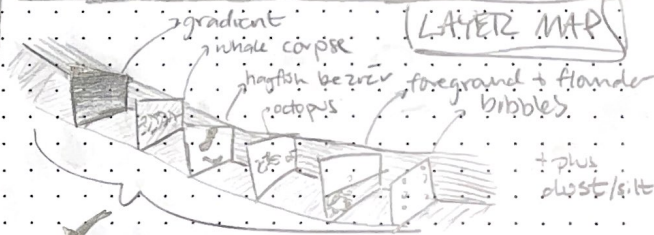 LAYER MAP
gradient
whale corpse
hagfish bezier
octopus
foreground + flounder
bibbles
+ plus
dust/silt